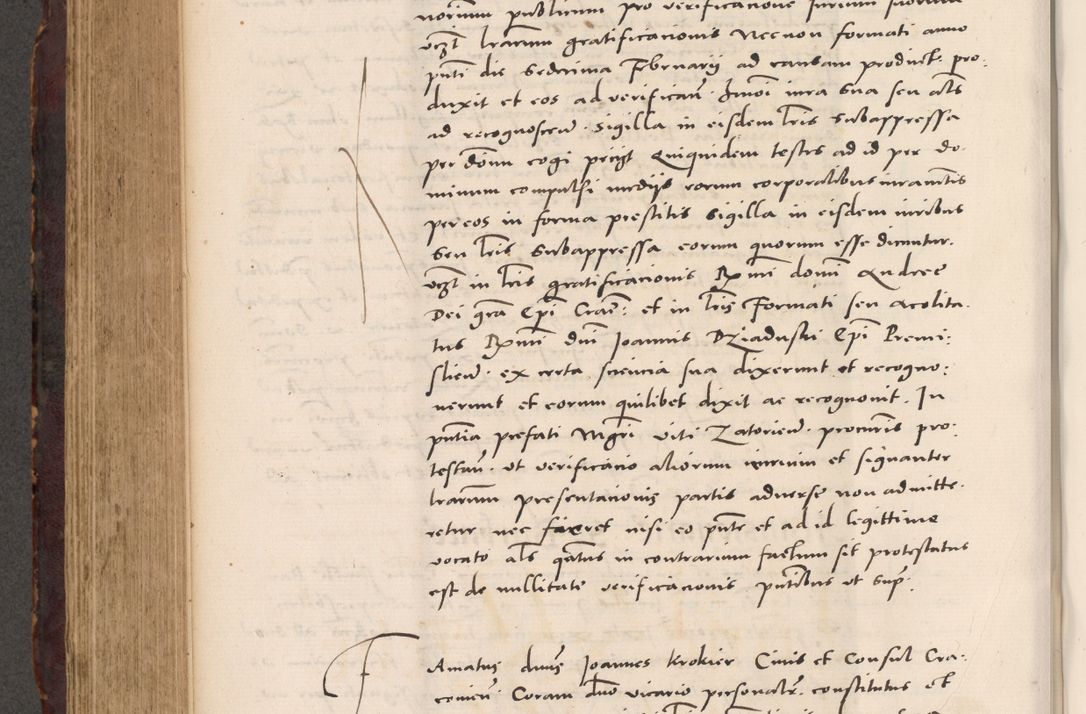 norium publicum pro verificacione iurium suorum
vczt lrarum gratificacionis Necnon formati anno
pnti die Sedecima Februarij ad causam product. pro:
duxit et eos ad verifican. Jmoi iura sua seu als
ad recognoscen. Sigilla in eisdem lris subappressa
per dnum cogi peciyt Quiquidem testes ad id per do:
minum compulsi medijs eorum corporalibus iuramtis
per eos in forma prestitis Sigilla in eisdem iuribus
Seu lris Subappressa eorum quorum esse dicuntur.
vczt in lris gratificacionis Rmi domi Andree
Dei gra Epi Cracn: et in lris Formati seu Acolita
tus Rmi dni Joannis Dziaduski Epi Premi:
slien. ex certa sciencia sua dixerunt et recogno:
uerunt et eorum quilibet dixit ac recognouit. In
pntia prefati Mgri viti Zatorien. procuris pro:
testan. vt verificacio aliorum iurium et signanter
lrarum presentacionis partis aduerse non admitte:
retur nec fieret nisi eo pnte et ad id legittime
vocato als qtus in contrarium factum sit protestatus
est de nullitate verificacionis pntibus vt supr.
Famatus dnus Joannes Krokier Ciuis et Consul Cra:
couien. Coram dno vicario personalr. constitutus et